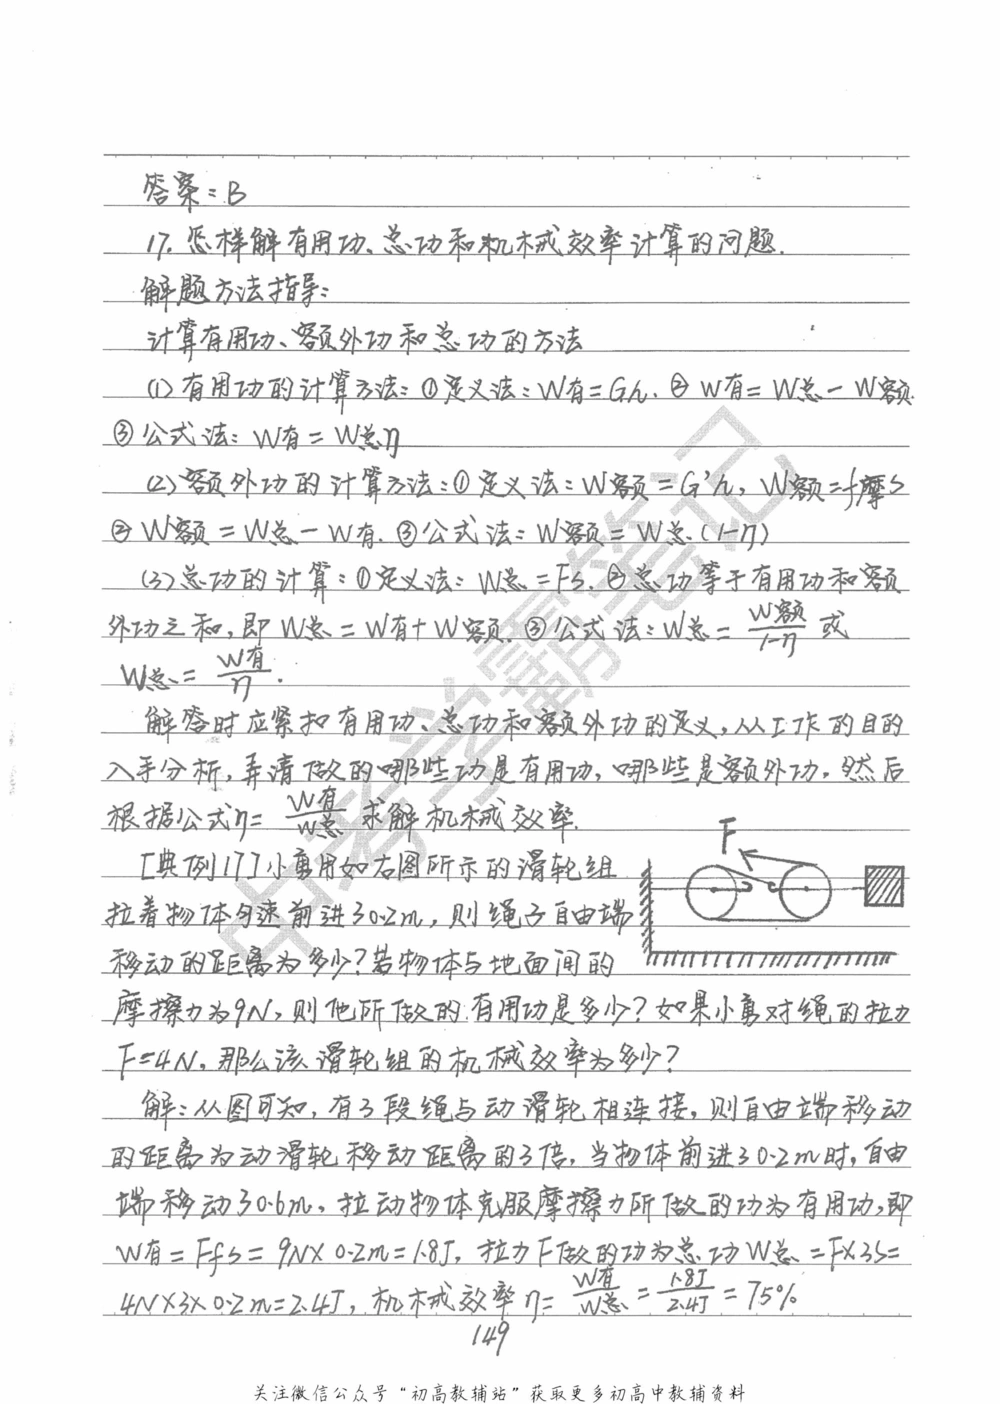 答案：B
17. 怎样解有用功、总功和机械效率计算的问题.
解题方法指导：
计算有用功、额外功和总功的方法
(1)有用功的计算方法：①定义法：W有=Gh. ②W有=W总-W额.
③公式法：W有=W总η
(2)额外功的计算方法：①定义法：W额=G'h，W额=f摩s
②W额=W总-W有. ③公式法：W额=W总(1-η)
(3)总功的计算：①定义法：W总=Fs. ②总功等于有用功和额
外功之和，即W总=W有+W额. ③公式法：W总=W额/1-η 或
W总=W有/η.
解答时应紧扣有用功、总功和额外功的定义，从工作的目的
入手分析，弄清做的哪些功是有用功，哪些是额外功，然后
根据公式η=W有/W总 求解机械效率.
F
[典例17]小勇用如右图所示的滑轮组
拉着物体匀速前进了0.2m，则绳子自由端
移动的距离为多少？若物体与地面间的
摩擦力为9N，则他所做的有用功是多少？如果小勇对绳的拉力
F=4N，那么该滑轮组的机械效率为多少？
解：从图可知，有3段绳与动滑轮相连接，则自由端移动
的距离为动滑轮移动距离的3倍，当物体前进了0.2m时，自由
端移动了0.6m，拉动物体克服摩擦力所做的功为有用功，即
W有=Ffs=9N×0.2m=1.8J，拉力F做的功为总功W总=F×3s=
4N×3×0.2m=2.4J，机械效率η=W有/W总=1.8J/2.4J=75%
149
关注微信公众号“初高教辅站”获取更多初高中教辅资料
中考学霸笔记